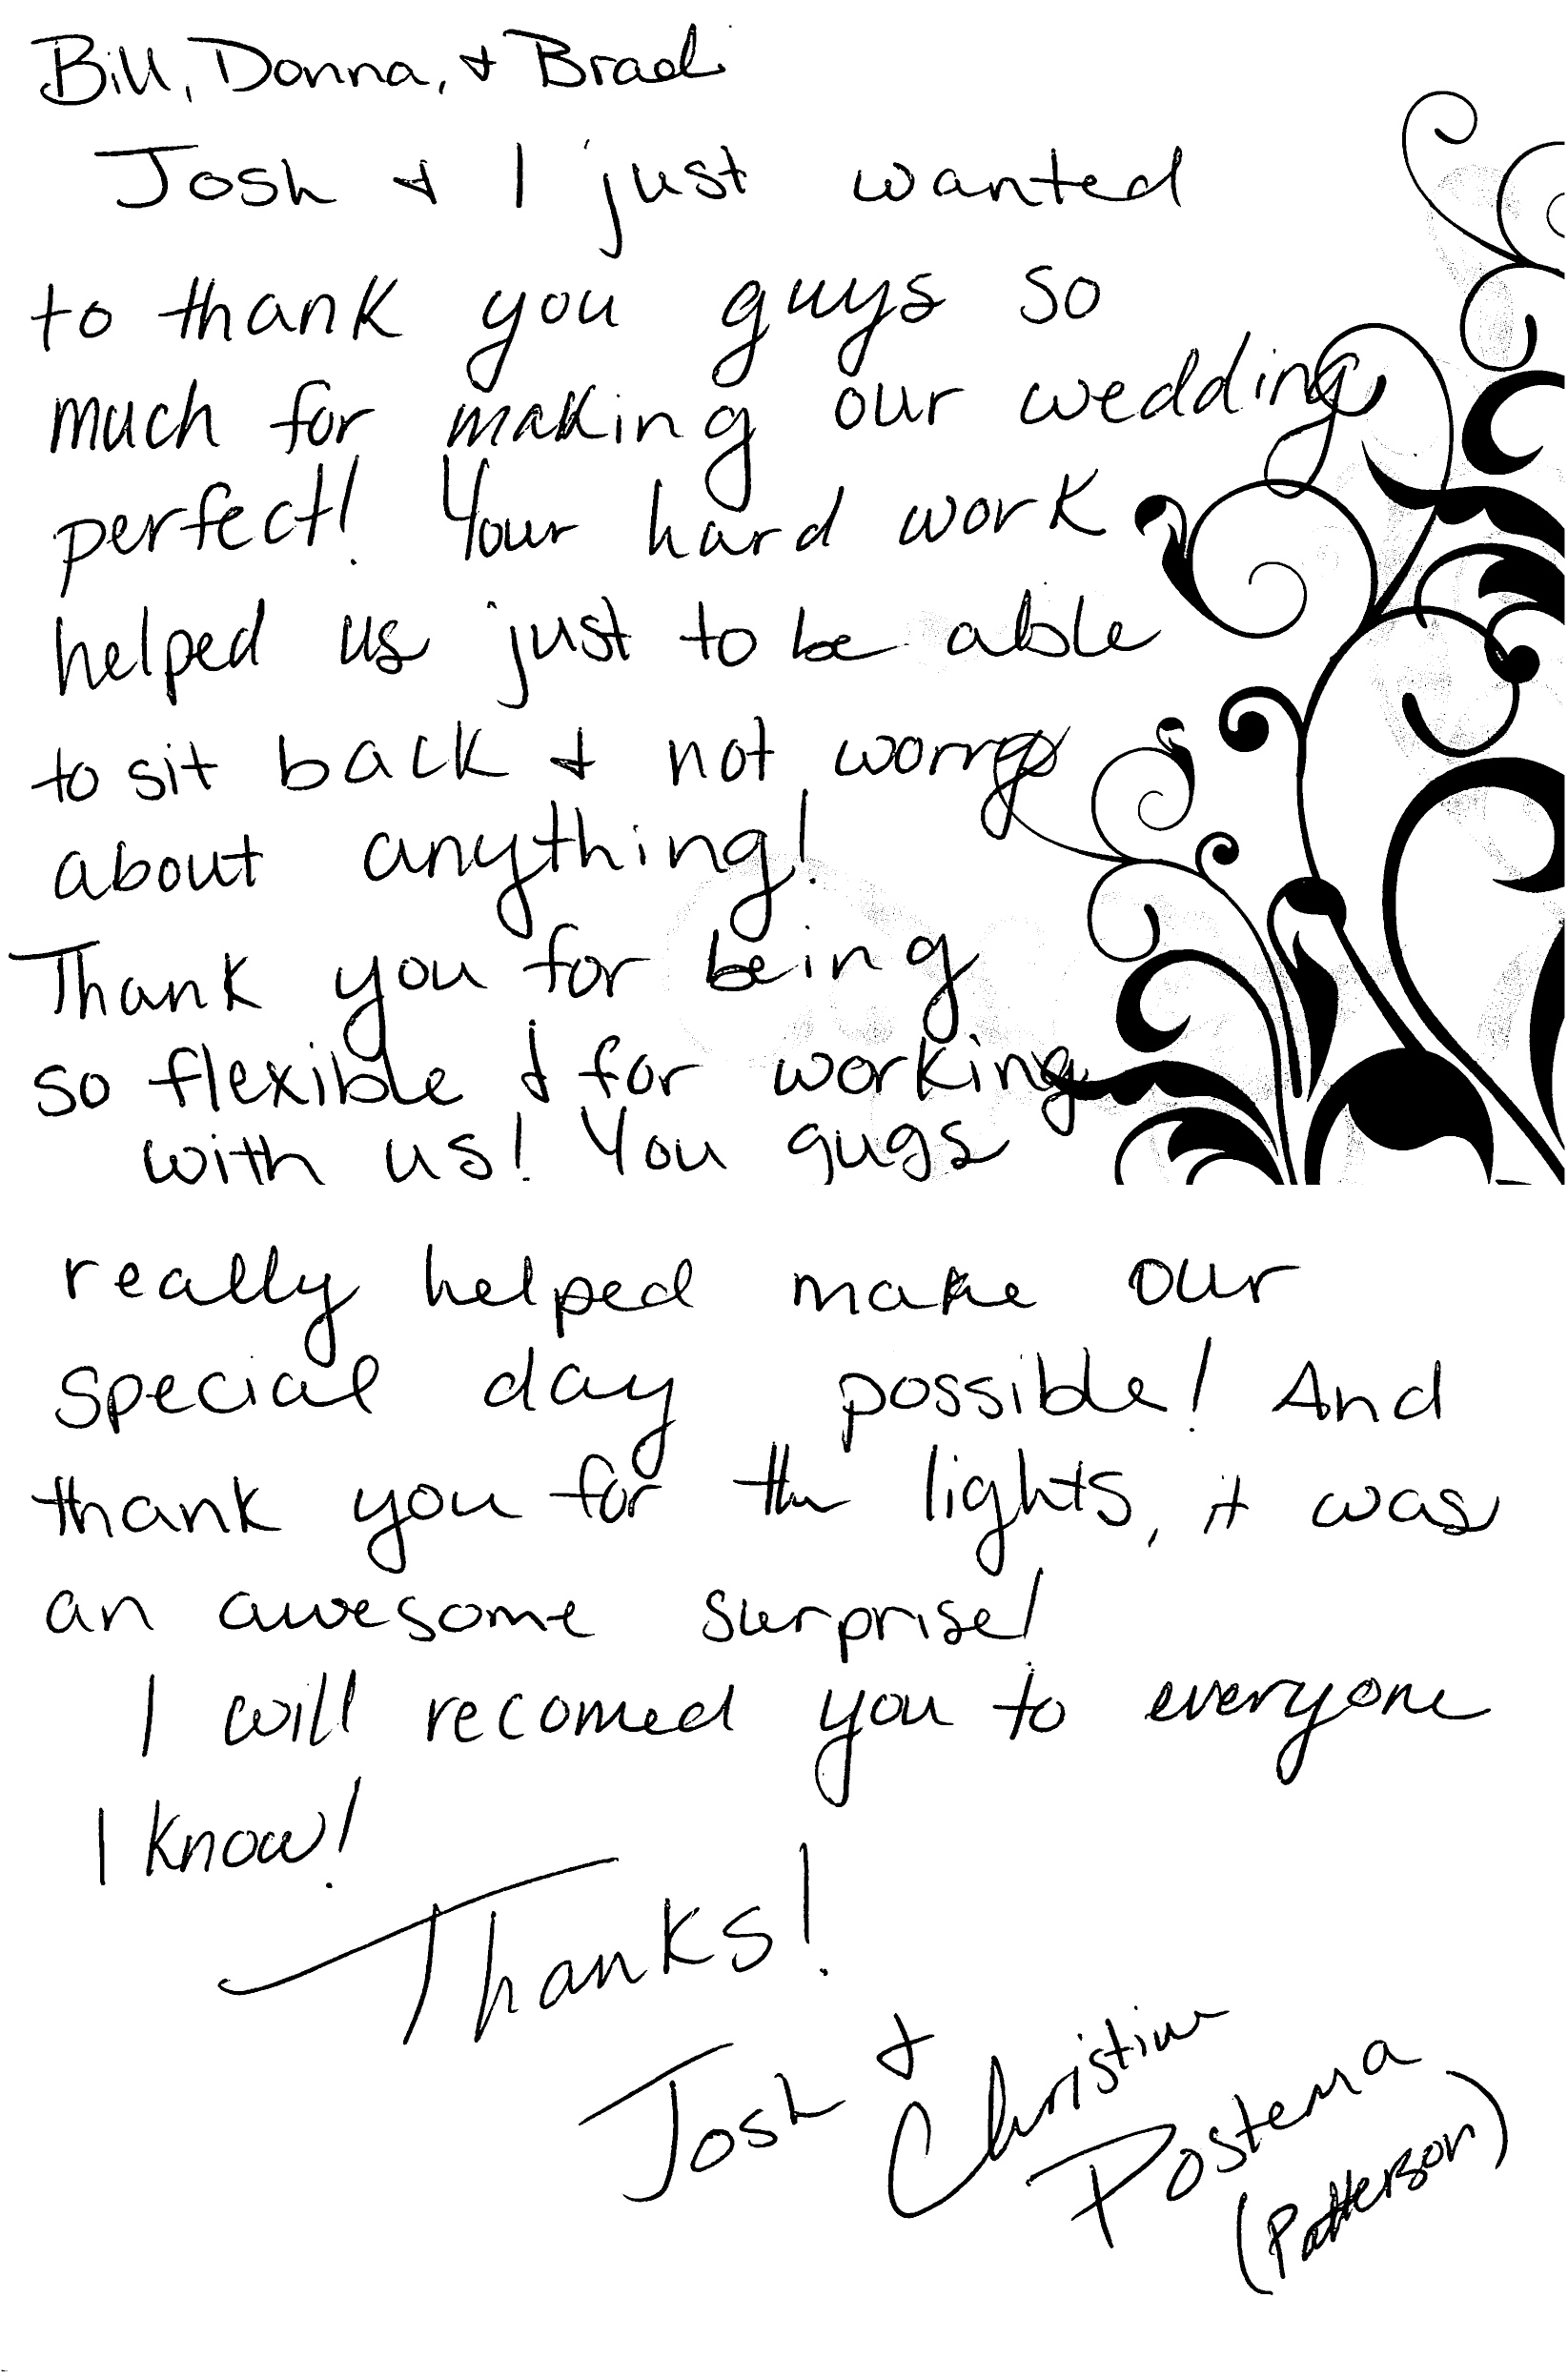 Bill, Donna, & Brad
Josh & I just wanted
to thank you guys so
much for making our wedding
perfect! Your hard work
helped us just to be able
to sit back & not worry
about anything!
Thank you for being
so flexible & for working
with us! You guys
really helped make our
special day possible! And
thank you for the lights, it was
an awesome surprise!
I will recomed you to everyone
I know!
Thanks!
Josh &
Christine
Postema
(Patterson)